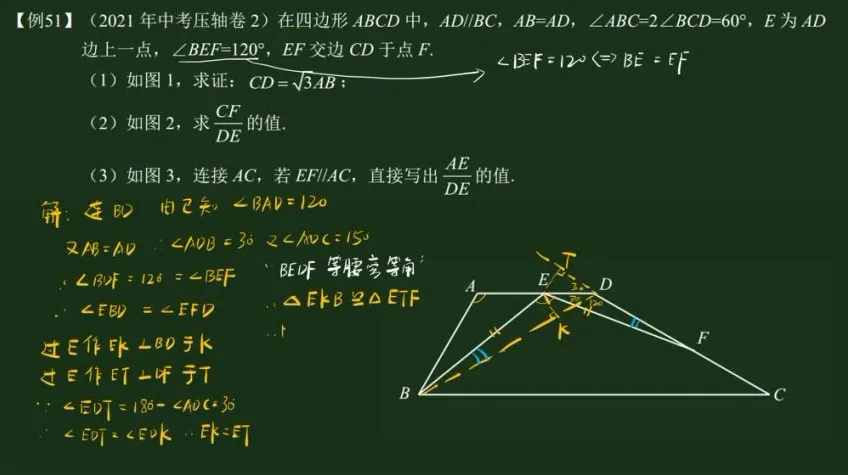 【例51】（2021 年中考压轴卷 2）在四边形 ABCD 中，AD//BC，AB=AD，∠ABC=2∠BCD=60°，E 为 AD
边上一点，∠BEF=120°，EF 交边 CD 于点 F.
∠BEF=120 <=> BE = EF
（1）如图 1，求证：CD=√3AB；
（2）如图 2，求 CF/DE 的值.
（3）如图 3，连接 AC，若 EF//AC，直接写出 AE/DE 的值.
解：连 BD 由已知 ∠BAD=120
又AB=AD ∴∠ADB=30 又∠ADC=150
∴∠BDF=120=∠BEF
∴∠EBD=∠EFD
过E作EK⊥BD于K
过E作ET⊥DF于T
∵∠EDT=180-∠ADC=30
∴∠EDT=∠EDK ∴EK=ET
∵BEDF 等腰旁等角
∴△EKB≌△ETF
∴
T
A
E
D
30
30
120
K
F
B
C